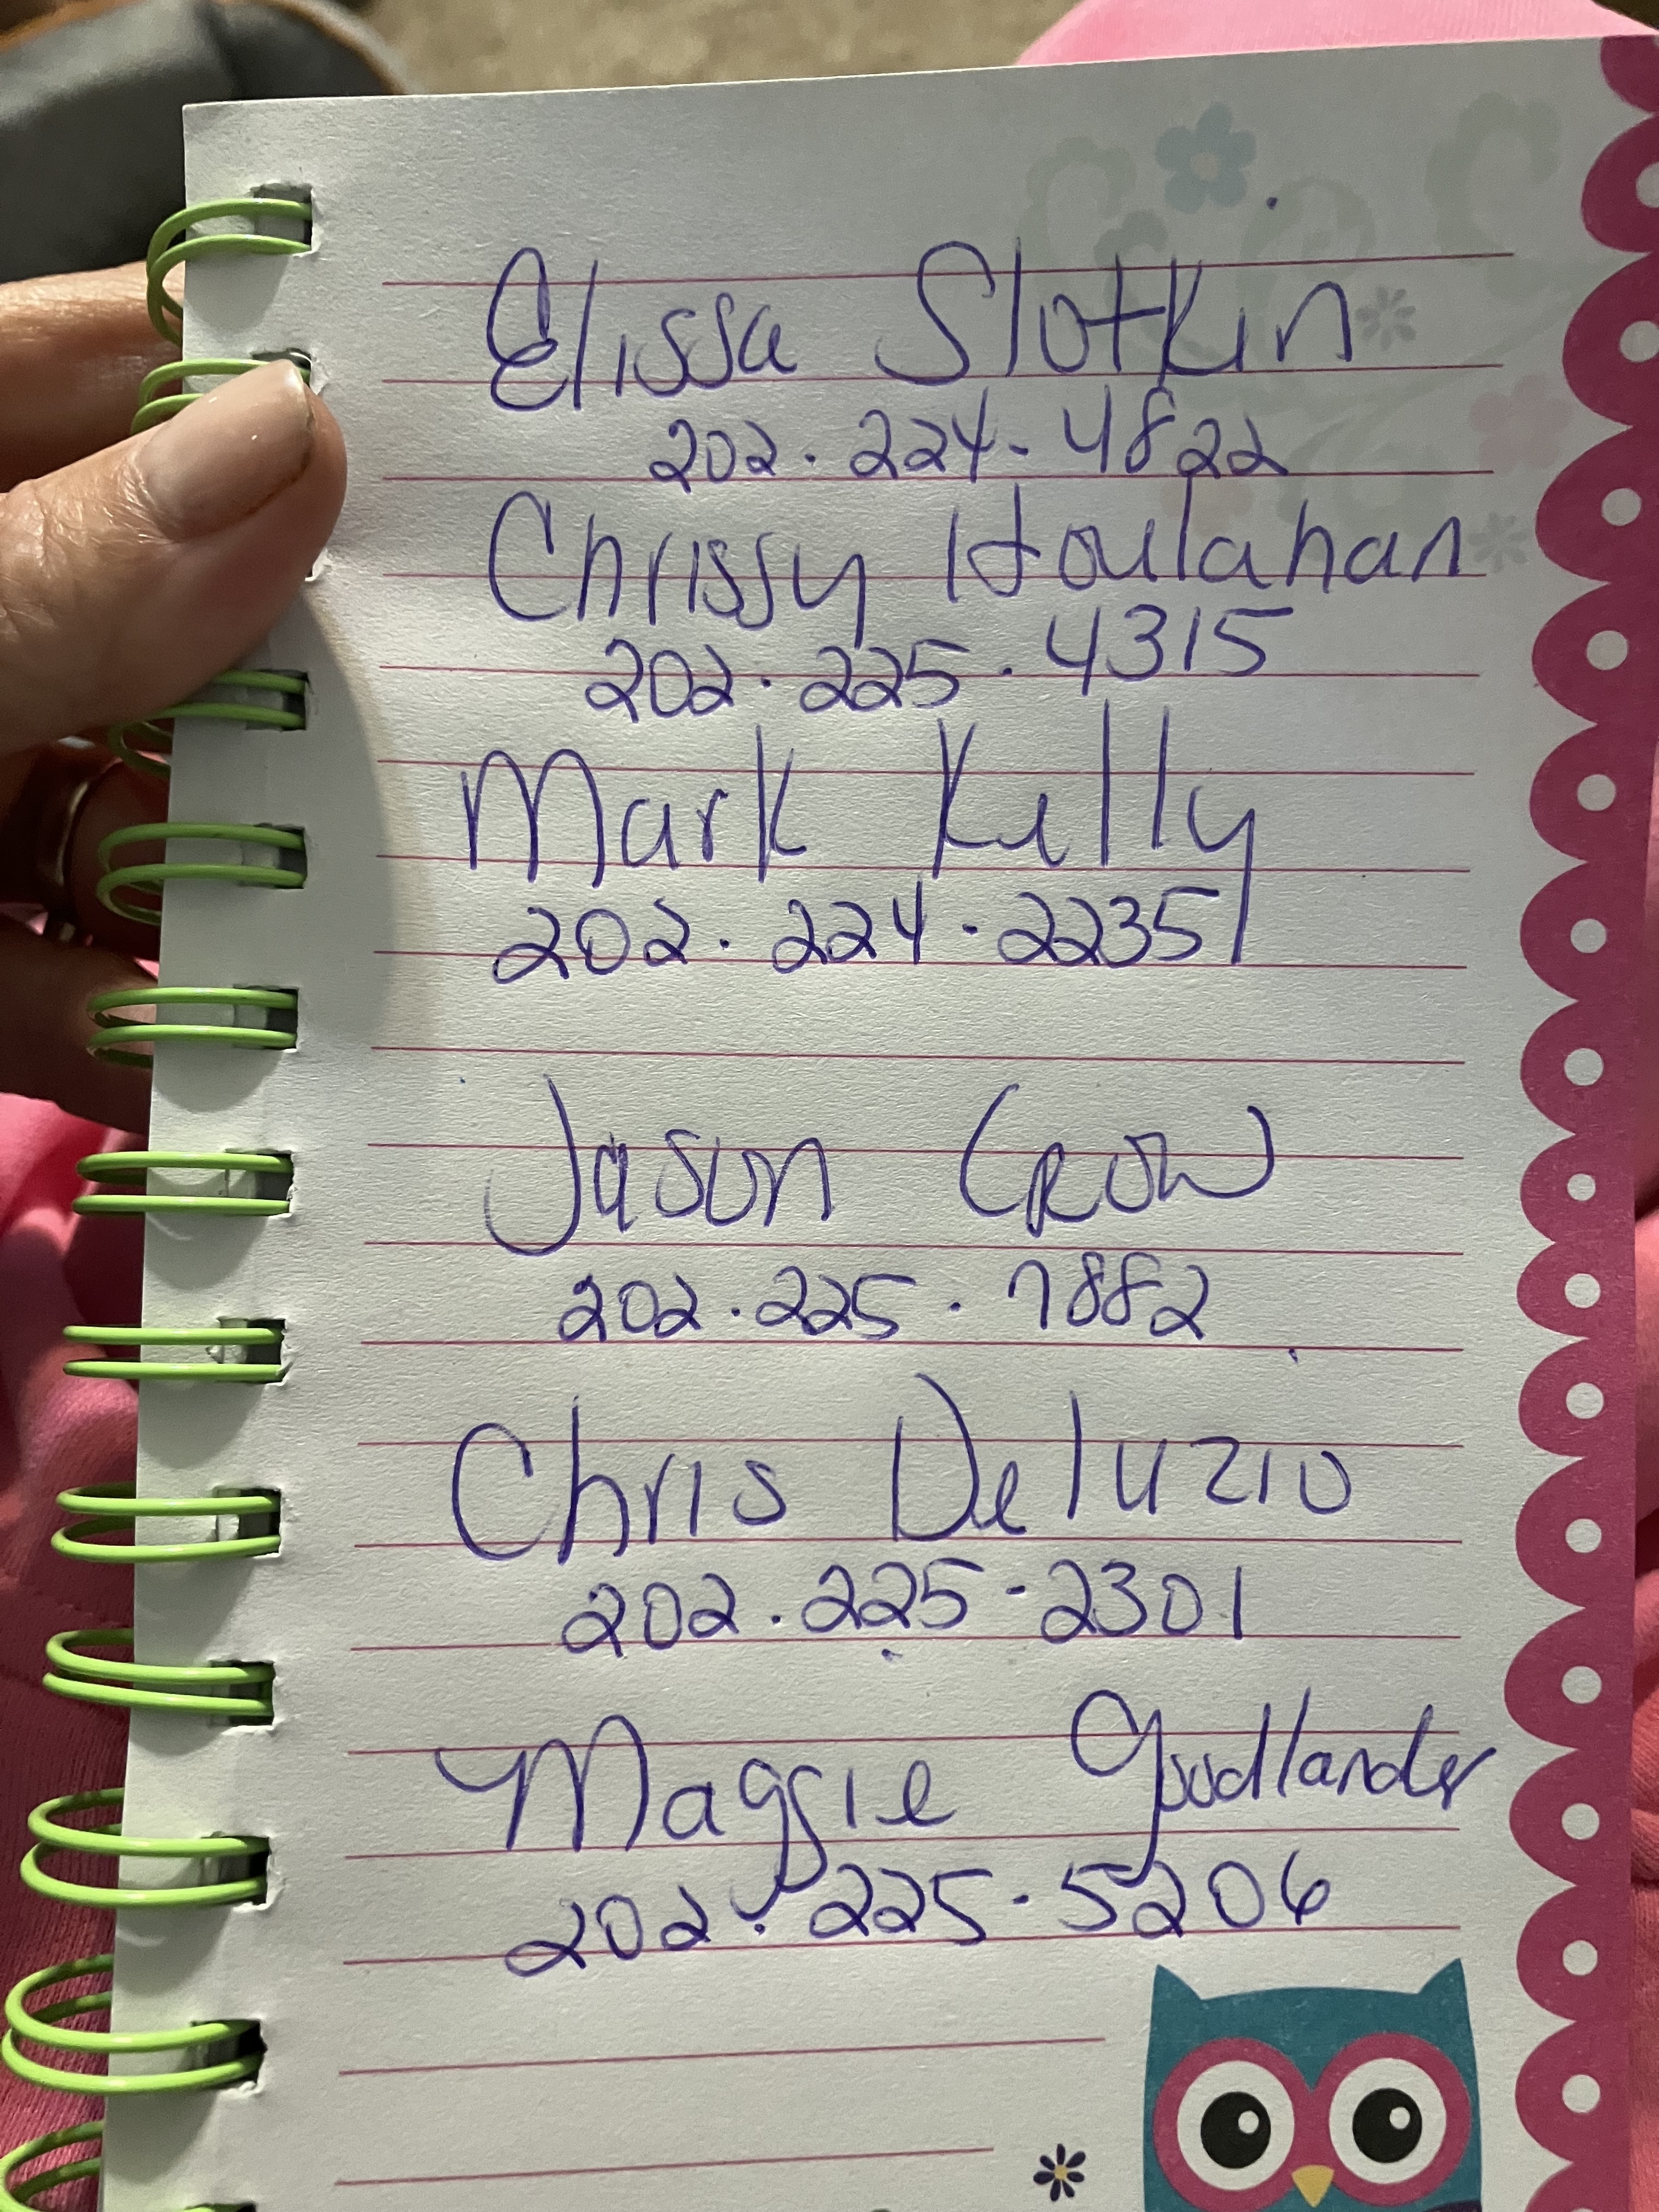 Elissa Slotkin
202. 224-4822
Chrissy Houlahan
202. 225. 4315
Mark Kelly
202. 224. 2235
Jason Crow
202. 225. 7882
Chris Deluzio
202. 225-2301
Maggie Goodlander
202. 225. 5206